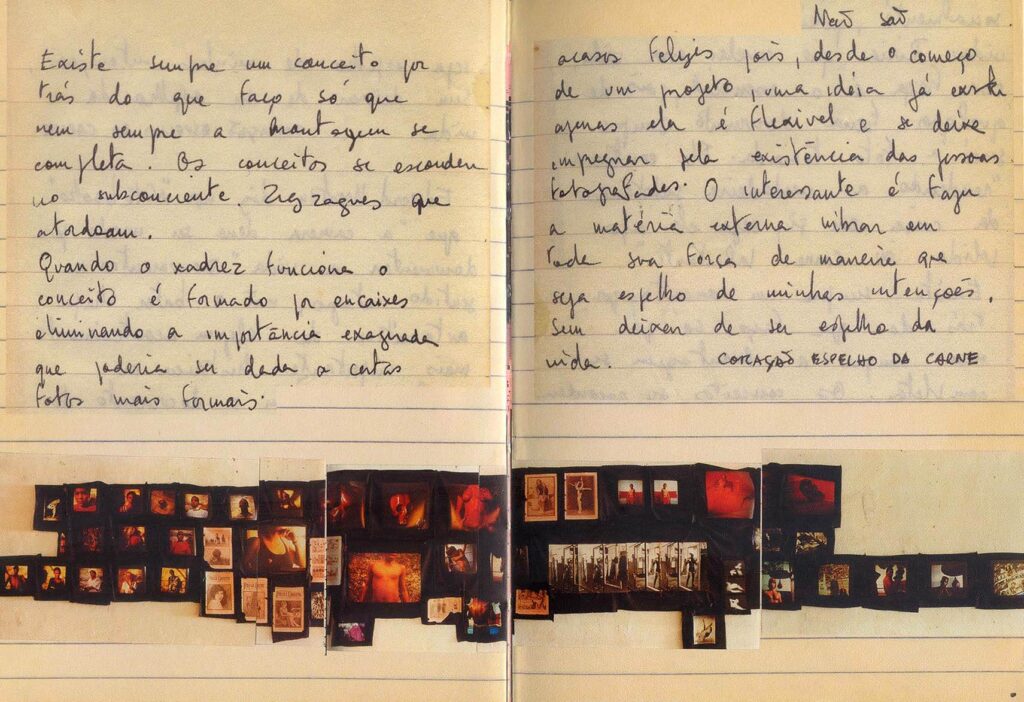 Existe sempre um conceito por
trás do que faço só que
nem sempre a montagem se
completa. Os conceitos se escondem
no subconciente. Zig zagues que
atordoam.
Quando o xadrez funciona o
conceito é formado por encaixes
eliminando a importância exagerada
que poderia ser dada a certas
fotos mais formais.
Não são
acasos felizes pois, desde o começo
de um projeto, uma idéia já existe
apenas ela é flexível e se deixe
impregnar pela existência das pessoas
fotografadas. O interessante é fazer
a matéria externa vibrar em
toda sua força de maneira que
seja espelho de minhas intenções.
Sem deixar de ser espelho da
vida. CORAÇÃO ESPELHO DA CARNE